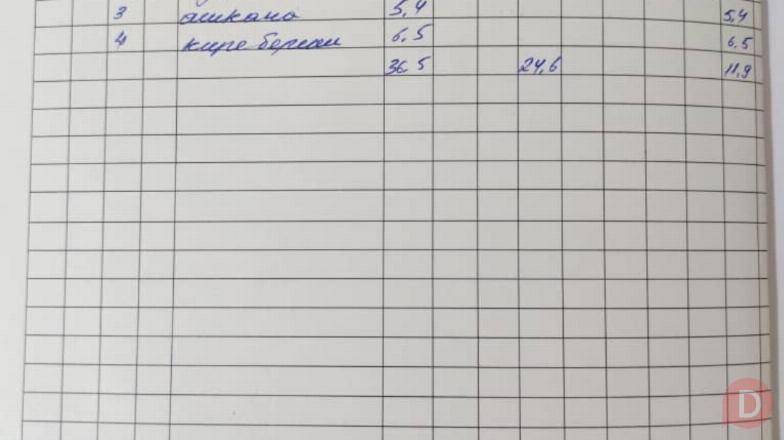 3 ашкана 5,4 5,4
4 кире бериш 6.5 6.5
36.5 24,6 11,9
D